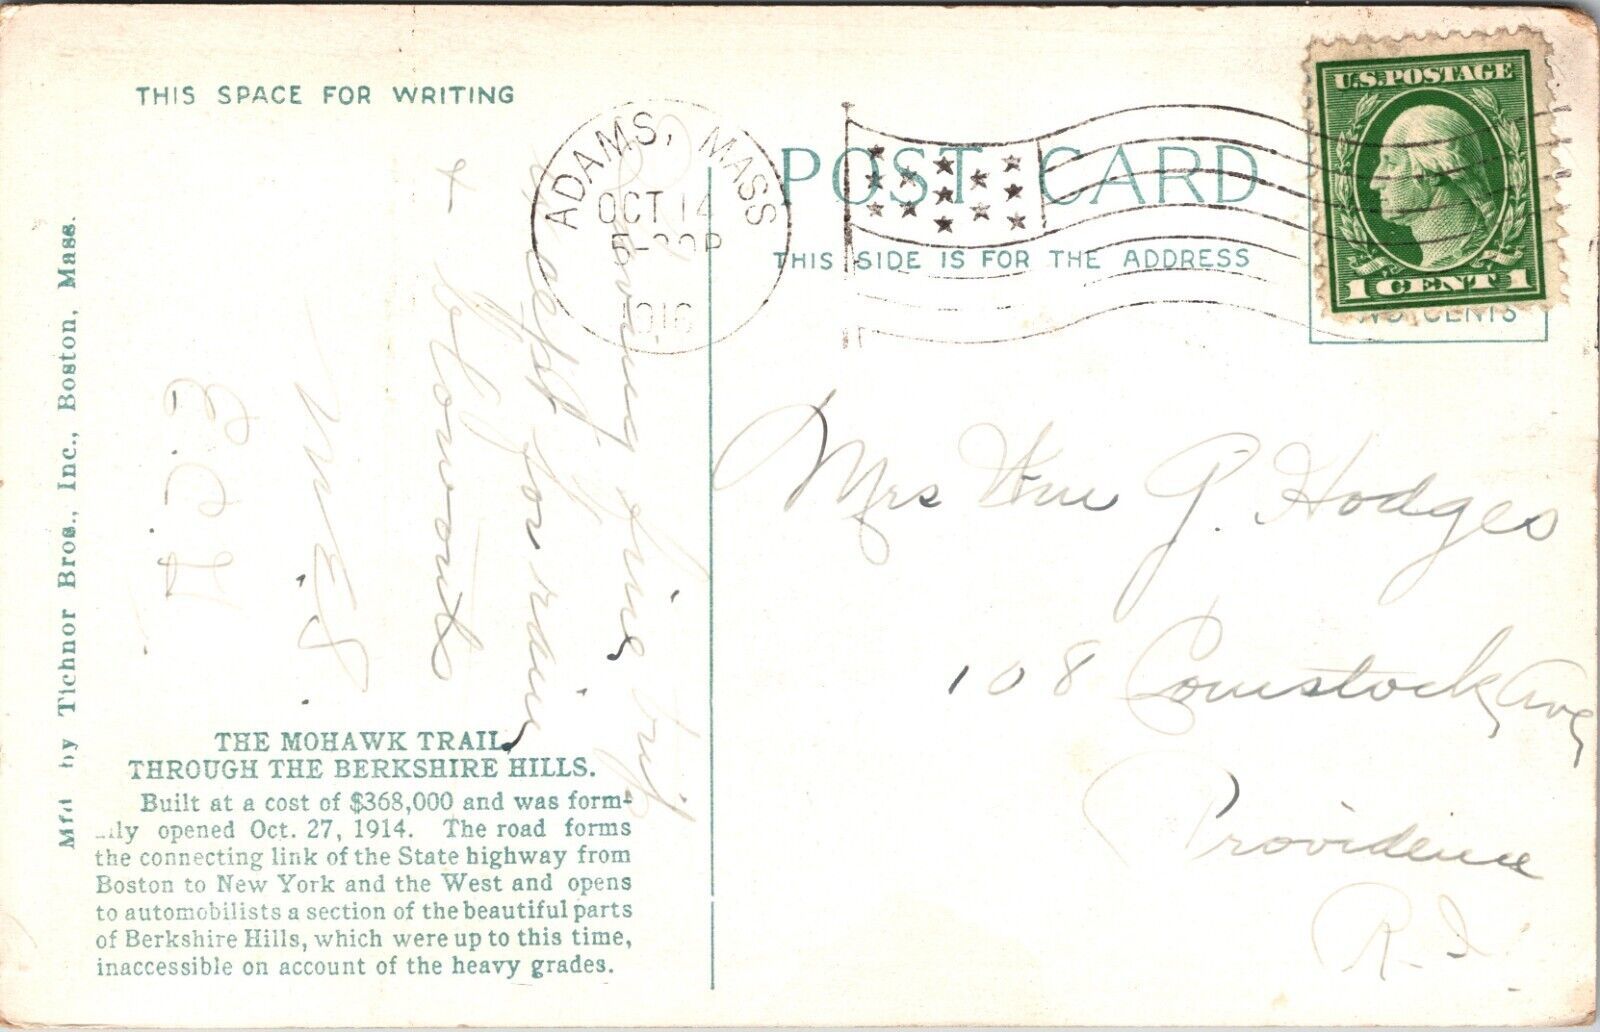 THIS SPACE FOR WRITING
Having fine trip
except for rain
+ blowouts
W.E.S.
Mf'd by Tichnor Bros., Inc., Boston, Mass.
THE MOHAWK TRAIL,
THROUGH THE BERKSHIRE HILLS.
Built at a cost of $368,000 and was form-
ally opened Oct. 27, 1914. The road forms
the connecting link of the State highway from
Boston to New York and the West and opens
to automobilists a section of the beautiful parts
of Berkshire Hills, which were up to this time,
inaccessible on account of the heavy grades.
ADAMS, MASS
OCT 14
1916
POST CARD
THIS SIDE IS FOR THE ADDRESS
U.S. POSTAGE
1 CENT 1
CENTS
Mrs Wm G. Hodges
108 Comstock Ave
Providence
R.I.